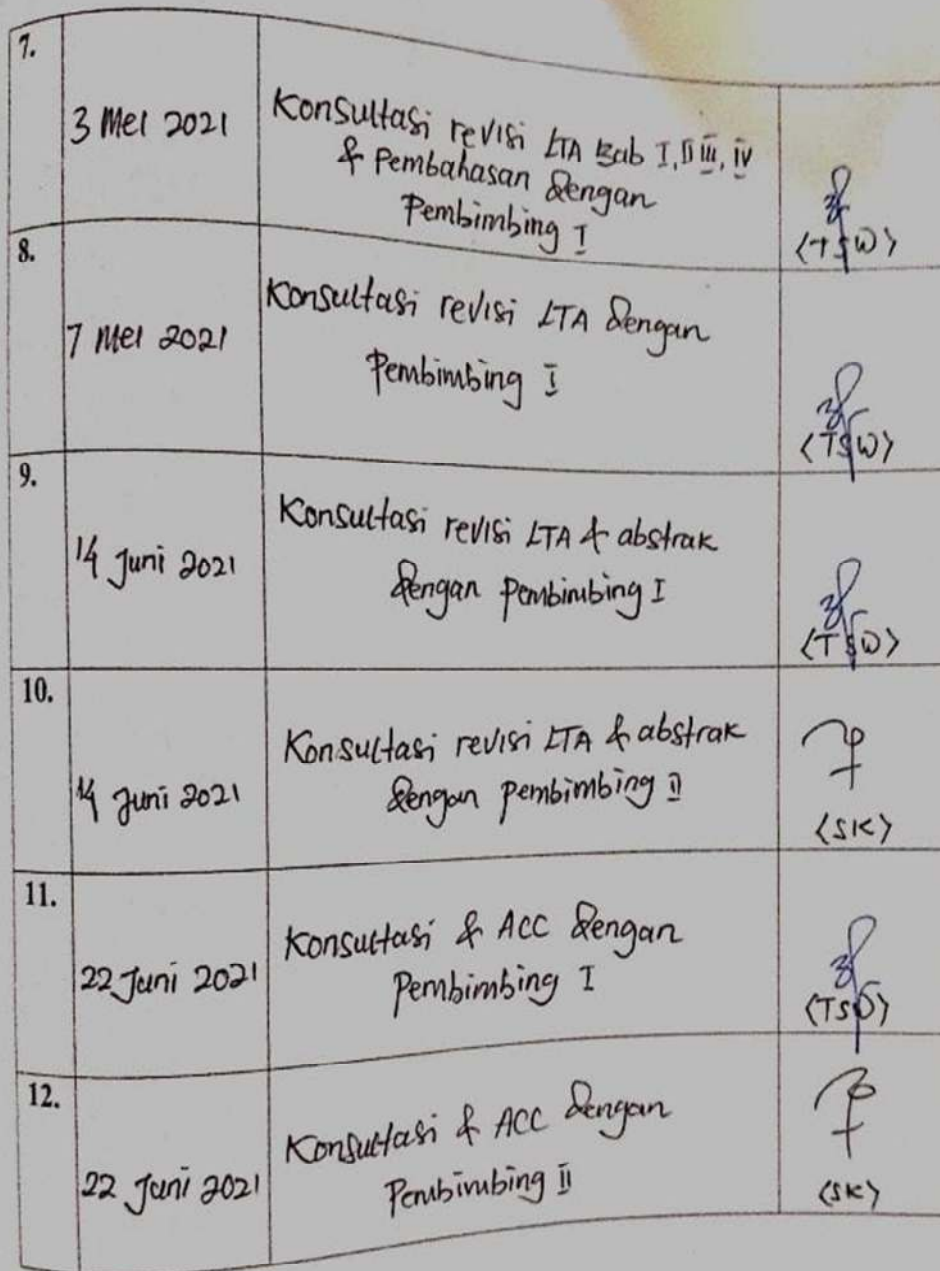 7.
3 Mei 2021
Konsultasi revisi LTA Bab I, II III, IV
& Pembahasan dengan
Pembimbing I
<TSW>
8.
7 Mei 2021
Konsultasi revisi LTA dengan
Pembimbing I
<TSW>
9.
14 Juni 2021
Konsultasi revisi LTA & abstrak
dengan pembimbing I
<TSW>
10.
14 Juni 2021
Konsultasi revisi LTA & abstrak
dengan pembimbing II
<SK>
11.
22 Juni 2021
Konsultasi & ACC dengan
Pembimbing I
<TSW>
12.
22 Juni 2021
Konsultasi & ACC dengan
Pembimbing II
<SK>